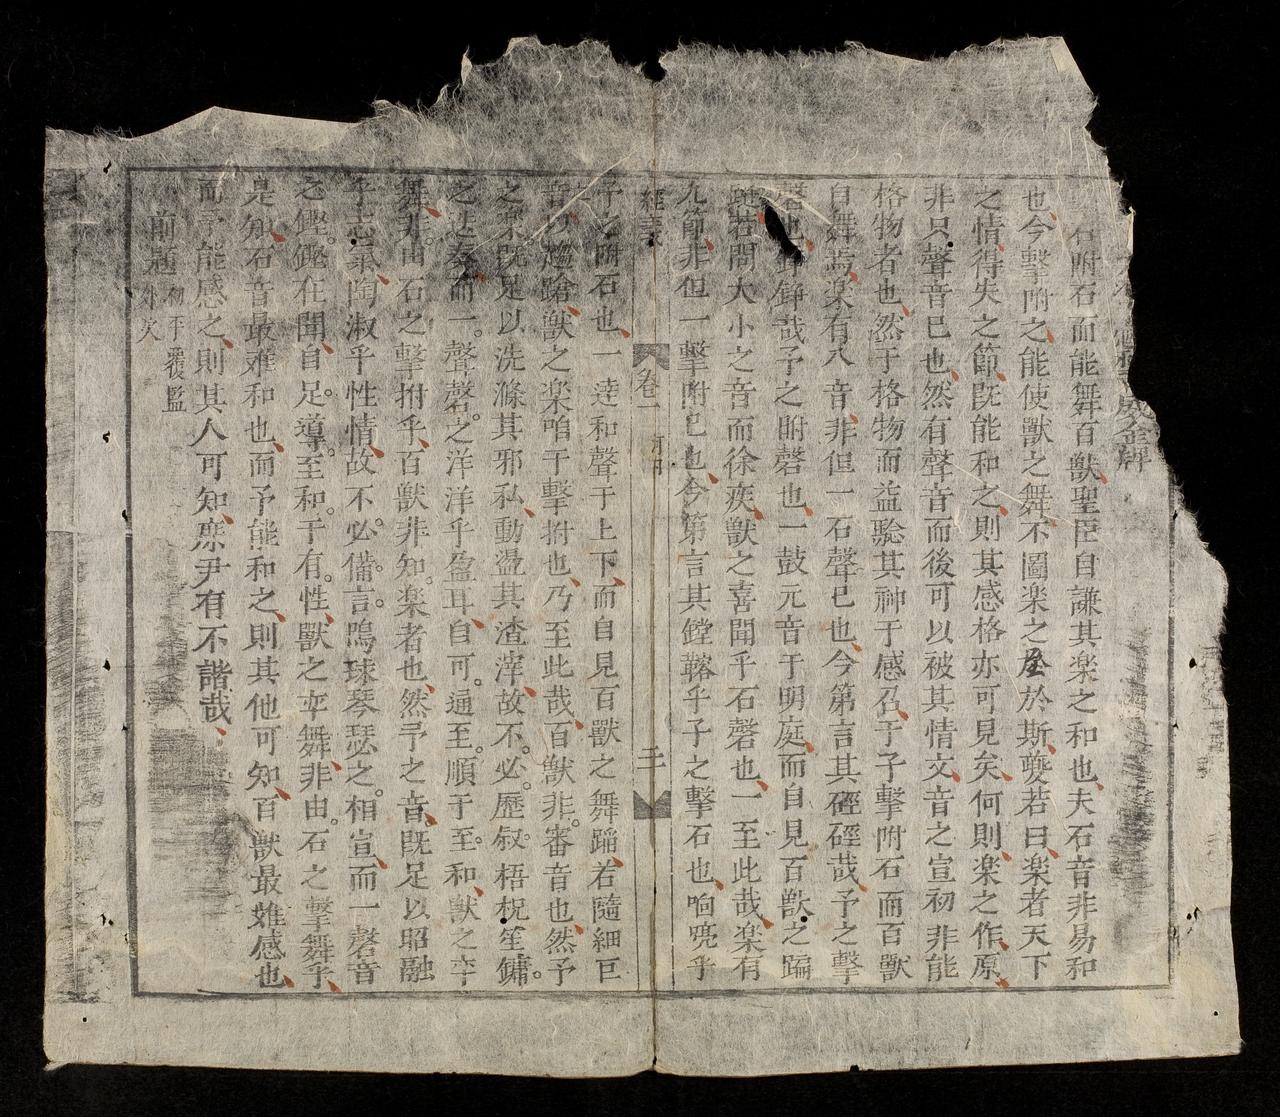 石附石而能舞百獸聖臣自謙其楽之和也夫石音非易和
也今擊附之能使獸之舞不圖楽之至於斯夔若曰楽者天下
之情得失之節既能和之則其感格亦可見矣何則楽之作原
非只聲音已也然有聲音而後可以被其情文音之宣初非能
格物者也然于格物而益驗其神于感召于予擊附石而百獸
自舞焉楽有八音非但一石聲已也今第言其硜硜哉予之擊
磬也錚錚哉予之附磬也一鼓元音于明庭而自見百獣之蹁
躚若間大小之音而徐疾獸之喜聞乎石磬也一至此哉楽有
九節非但一擊附已也今第言其鏜鞳乎子之擊石也响喨乎
經義
卷一
二
予之附石也一達和聲于上下而自見百獸之舞蹈若隨細巨
音以趨蹌獸之楽咱于擊拊也乃至此哉百獸非審音也然予
之楽既足以洗滌其邪私動盪其渣滓故不必歴叙梧柷笙鏞
之迭奏而一聲磬之洋洋乎盈耳自可通至順于至和獣之卒
舞非由石之擊拊乎百獸非知楽者也然予之音既足以昭融
乎志氣陶淑乎性情故不必備言鳴球琴瑟之相宣而一磬音
之鏗鏗在聞自足導至和于有性獸之卒舞非由石之擊舞乎
是知石音最难和也而予能和之則其他可知百獣最难感也
而予能感之則其人可知庶尹有不諧哉
前題
初平覆監
外次